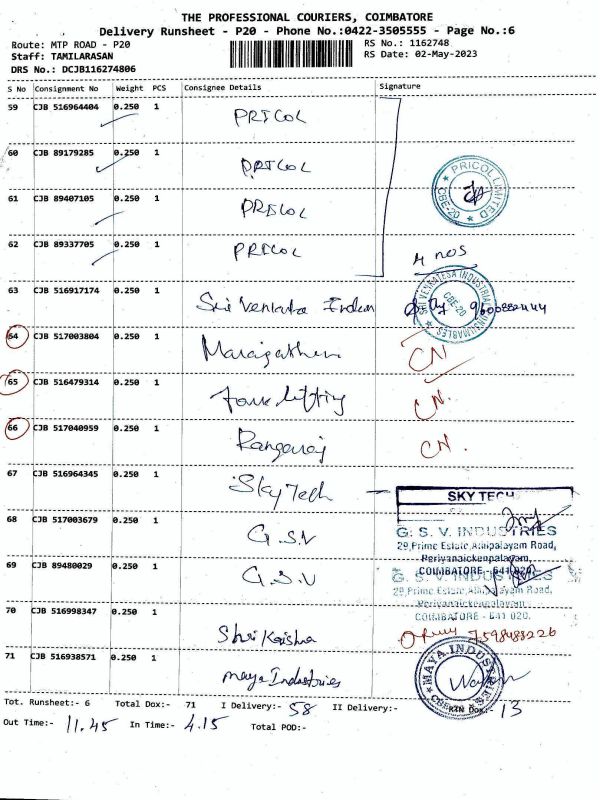 THE PROFESSIONAL COURIERS, COIMBATORE
Delivery Runsheet - P20 - Phone No.:0422-3505555 - Page No.:6
Route: MTP ROAD - P20 RS No.: 1162748
Staff: TAMILARASAN RS Date: 02-May-2023
DRS No.: DCJB116274806
S No Consignment No Weight PCS Consignee Details Signature
59 CJB 516964404 0.250 1 PRICOL
60 CJB 89179285 0.250 1 PRICOL
PRICOL LIMITED CBE-20
61 CJB 89407105 0.250 1 PRICOL
62 CJB 89337705 0.250 1 PRICOL 4 nos
63 CJB 516917174 0.250 1 Sri Venkata
SRI VENKATESA INDUSTRIAL CONSUMABLES CBE-20
64 CJB 517003804 0.250 1 CN
65 CJB 516479314 0.250 1 CN.
66 CJB 517040959 0.250 1 Rangaraj CN.
67 CJB 516964345 0.250 1 Sky Tech SKY TECH
68 CJB 517003679 0.250 1 G.S.V G. S. V. INDUSTRIES
29,Prime Estate, Road,
Periyanaickenpalayam,
COIMBATORE - 641 020.
69 CJB 89480029 0.250 1 G.S.V G. S. V. INDUSTRIES
29,Prime Estate, Road,
Periyanaickenpalayam
COIMBATORE - 641 020.
70 CJB 516998347 0.250 1 Shri Krishna 7598488226
71 CJB 516938571 0.250 1 Maya Industries MAYA INDUSTRIES CBE-20
Tot. Runsheet:- 6 Total Dox:- 71 I Delivery:- 58 II Delivery:- RTN Dox:- 13
Out Time:- 11.45 In Time:- 4.15 Total POD:-